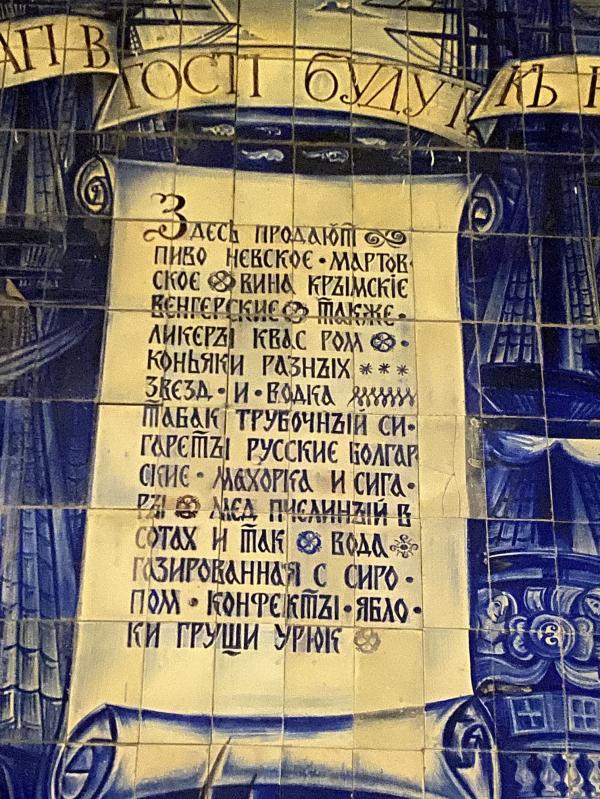 АГИ В ГОСТИ БУДУТ КЪ
Здесь продают
пиво невское · мартов·
ское вина крымскіе
венгерские также·
ликеры квас ром ·
коньяки разных ***
звезд · и · водка
табак трубочный си-
гареты русские болгар
ские · махорка и сига·
ры мед пчелиный в
сотах и так вода
газированная с сиро·
пом · конфекты · ябло·
ки груши урюк